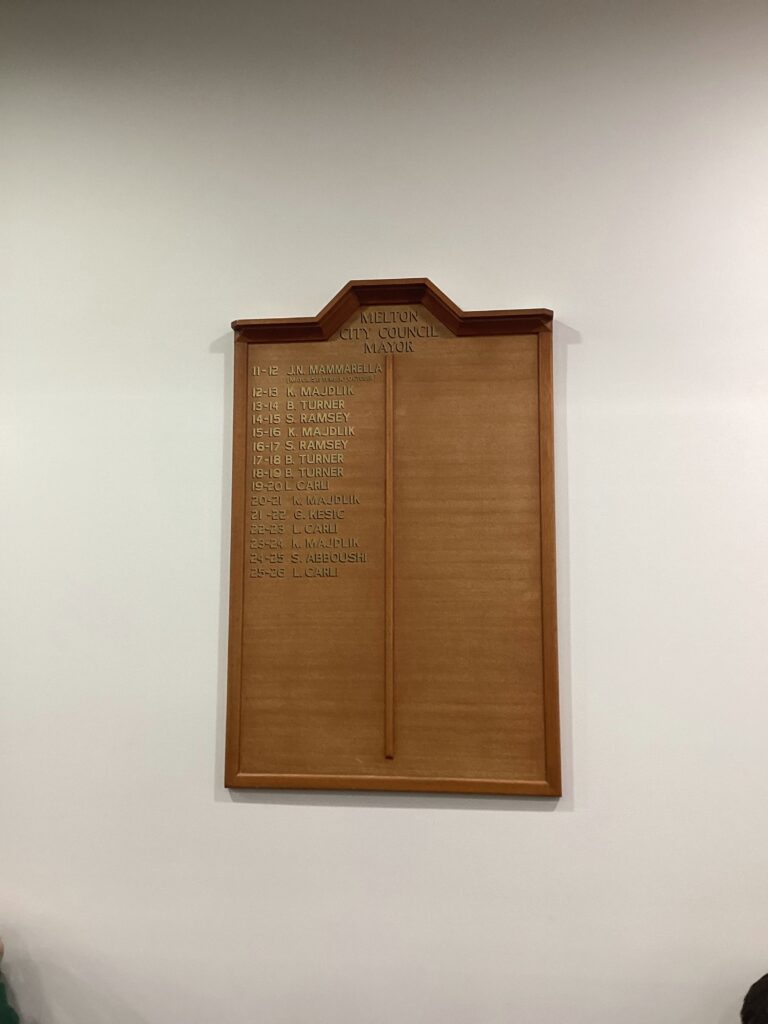 MELTON
CITY COUNCIL
MAYOR
11-12 J.N. MAMMARELLA
12-13 K. MAJDLIK
13-14 B. TURNER
14-15 S. RAMSEY
15-16 K. MAJDLIK
16-17 S. RAMSEY
17-18 B. TURNER
18-19 B. TURNER
19-20 L. CARLI
20-21 K. MAJDLIK
21-22 G. KESIC
22-23 L. CARLI
23-24 K. MAJDLIK
24-25 S. ABBOUSHI
25-26 L. CARLI